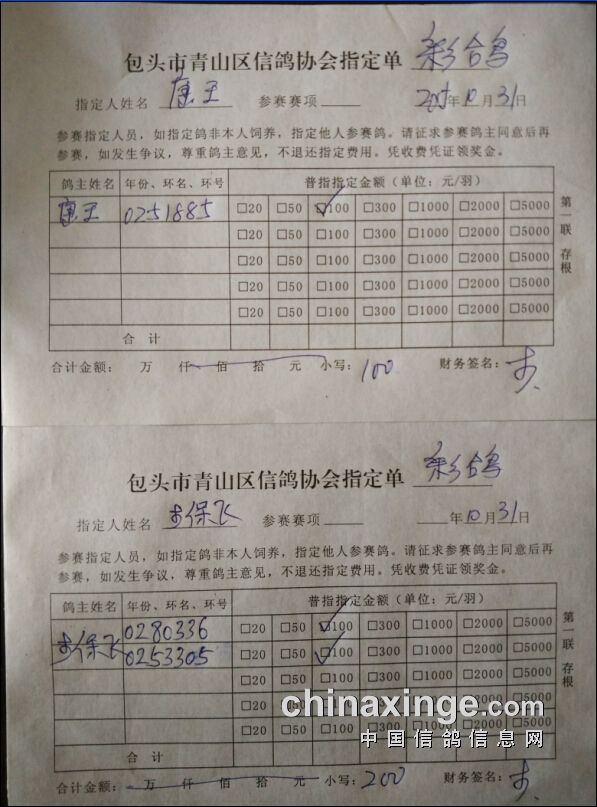 包头市青山区信鸽协会指定单 彩鸽
指定人姓名 康王 参赛赛项 2015年10月31日
参赛指定人员，如指定鸽非本人饲养，指定他人参赛鸽。请征求参赛鸽主同意后再
参赛，如发生争议，尊重鸽主意见，不退还指定费用。凭收费凭证领奖金。
鸽主姓名 年份、环名、环号 普指指定金额（单位：元/羽）
康王 0251885 □20 □50 □100 □300 □1000 □2000 □5000
□20 □50 □100 □300 □1000 □2000 □5000
□20 □50 □100 □300 □1000 □2000 □5000
□20 □50 □100 □300 □1000 □2000 □5000
□20 □50 □100 □300 □1000 □2000 □5000
合 计
第一联 存根
合计金额： 万 仟 佰 拾 元 小写：100 财务签名：
包头市青山区信鸽协会指定单 彩鸽
指定人姓名 保飞 参赛赛项 年10月31日
参赛指定人员，如指定鸽非本人饲养，指定他人参赛鸽。请征求参赛鸽主同意后再
参赛，如发生争议，尊重鸽主意见，不退还指定费用。凭收费凭证领奖金。
鸽主姓名 年份、环名、环号 普指指定金额（单位：元/羽）
0280336 □20 □50 □100 □300 □1000 □2000 □5000
保飞 0253305 □20 □50 □100 □300 □1000 □2000 □5000
□20 □50 □100 □300 □1000 □2000 □5000
□20 □50 □100 □300 □1000 □2000 □5000
□20 □50 □100 □300 □1000 □2000 □5000
合 计
第一联 存根
chinaxinge.com
中国信鸽信息网
合计金额： 万 仟 佰 拾 元 小写：200 财务签名：